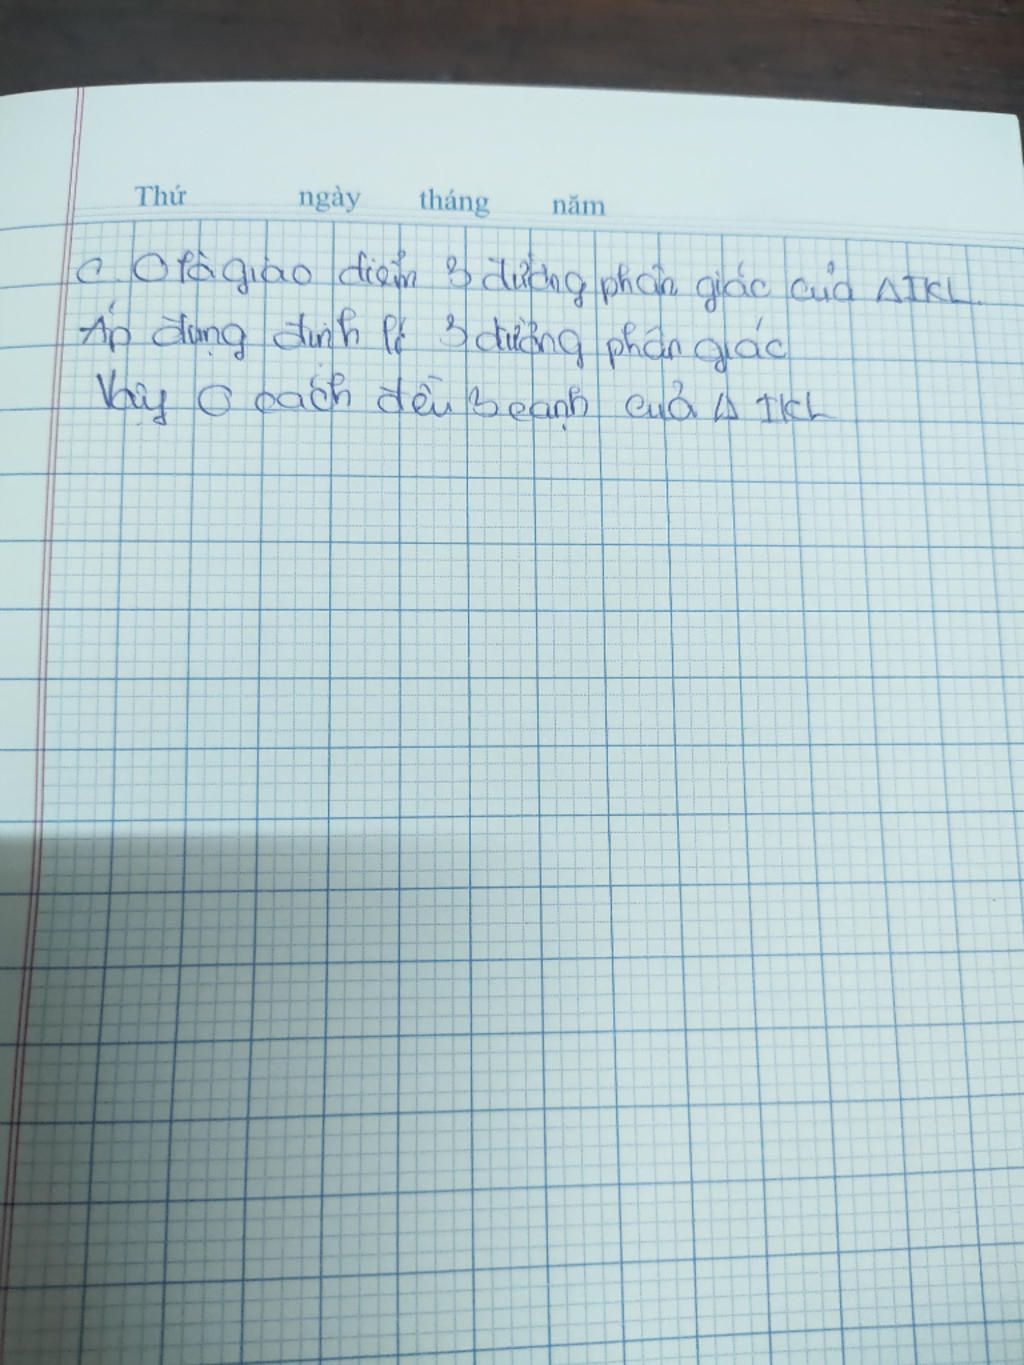 Thứ ngày tháng năm
c. O là giao điểm 3 đường phân giác của ΔIKL.
Áp dụng định lí 3 đường phân giác
Vậy O cách đều 3 cạnh của Δ IKL